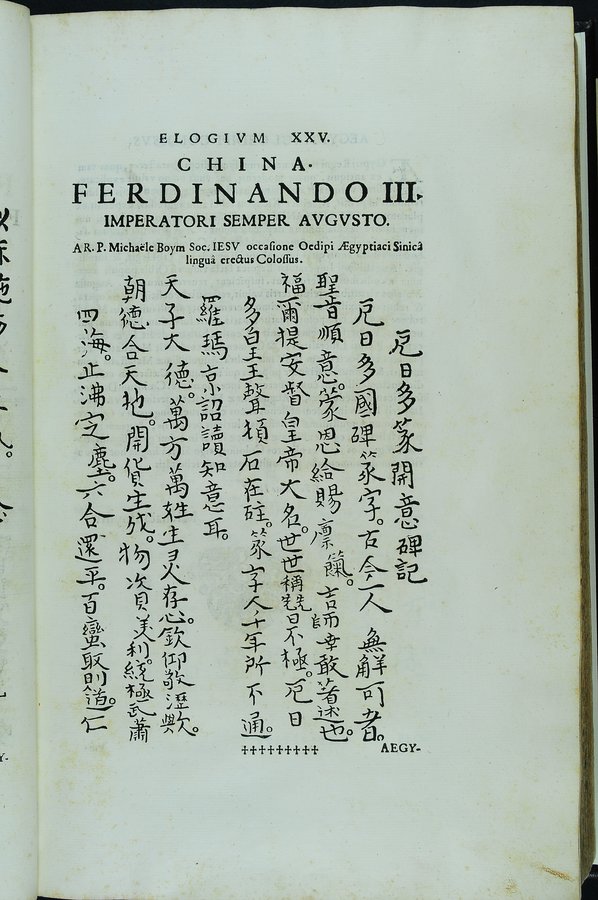 ELOGIVM XXV.
CHINA.
FERDINANDO III.
IMPERATORI SEMPER AVGVSTO.
A R. P. Michaële Boym Soc. IESV occasione Oedipi Ægyptiaci Sinicâ
linguâ erectus Colossus.
厄日多篆開意碑記
厄日多國碑篆字。古今一人無解可者。
聖旨順意。蒙恩給賜凛。吉師幸敢著述也。
福爾提安督皇帝大名。世世稱先日不極。厄日
多白王王聲石在砫。篆字人千年所不通。
羅瑪京詔讀知意耳。
天子大德。萬方萬姓生火存心。欽仰敬歟。
朝德合天地。開貨生成。物次美利。統極武蕭
四海。止沸定塵。六合還平。百蠻取則道。仁
✝✝✝✝✝✝✝✝✝
AEGY-